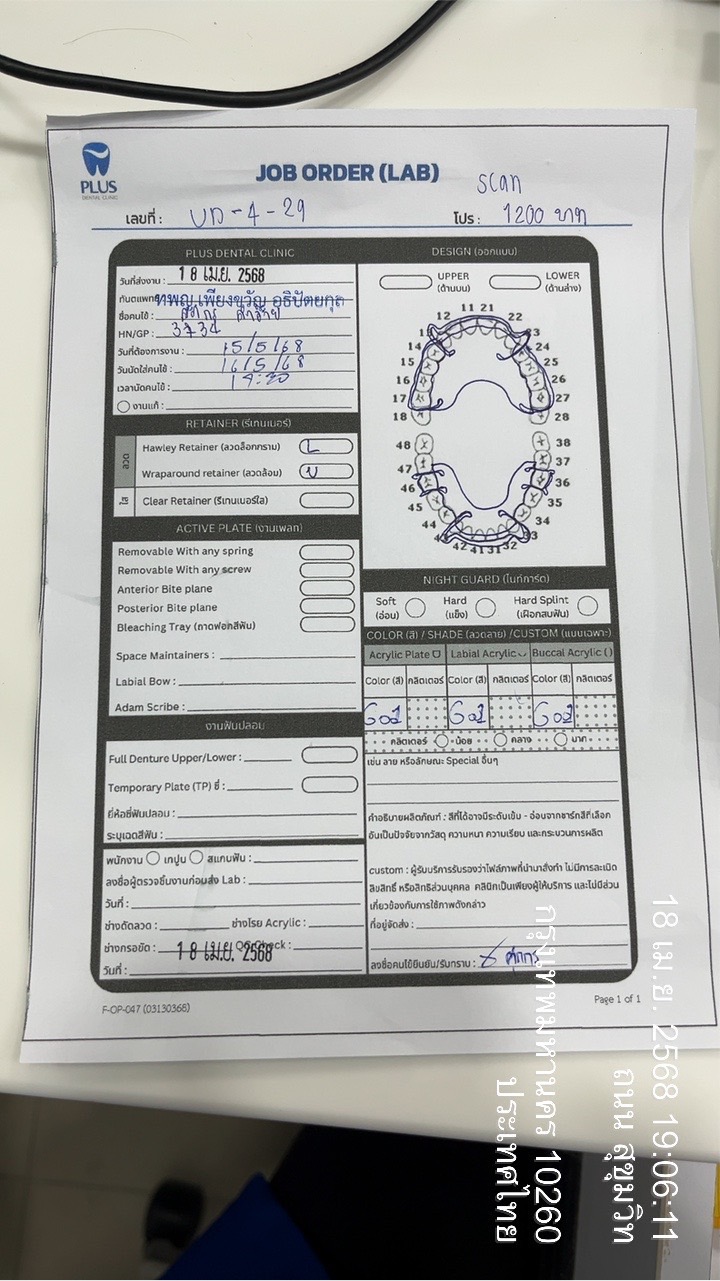 PLUS
DENTAL CLINIC
JOB ORDER (LAB)
scan
เลขที่ : บด-4-29
โปร : 1200 บาท
PLUS DENTAL CLINIC
วันที่ส่งงาน : 18 เม.ย. 2568
ทันตแพทย์ ทพญ.เพียงขวัญ อธิปัตยกุล
ชื่อคนไข้ : ศุภกร
HN/GP : 3734
วันที่ต้องการงาน : 15/5/68
วันนัดใส่คนไข้ : 16/5/68
เวลานัดคนไข้ :
งานแก้ :
RETAINER (รีเทนเนอร์)
ลวด
Hawley Retainer (ลวดล็อกกราม) L
Wraparound retainer (ลวดล้อม) U
ใส
Clear Retainer (รีเทนเนอร์ใส)
ACTIVE PLATE (งานเพลท)
Removable With any spring
Removable With any screw
Anterior Bite plane
Posterior Bite plane
Bleaching Tray (ถาดฟอกสีฟัน)
Space Maintainers :
Labial Bow :
Adam Scribe :
งานฟันปลอม
Full Denture Upper/Lower :
Temporary Plate (TP) ซี่ :
ยี่ห้อซี่ฟันปลอม :
ระบุเฉดสีฟัน :
พนักงาน เทปูน สแกนฟัน :
ลงชื่อผู้ตรวจชิ้นงานก่อนส่ง Lab :
วันที่ :
ช่างดัดลวด : ช่างโรย Acrylic :
ช่างกรอขัด : QC Check :
18 เม.ย. 2568
วันที่ :
DESIGN (ออกแบบ)
UPPER (ด้านบน)
LOWER (ด้านล่าง)
11 21
12 22
23
14 24
15 25
16 26
17 27
18 28
48 38
47 37
46 36
45 35
44 34
33
42 41 31 32
NIGHT GUARD (ไนท์การ์ด)
Soft (อ่อน)
Hard (แข็ง)
Hard Splint (เฝือกสบฟัน)
COLOR (สี) / SHADE (ลวดลาย) /CUSTOM (แบบเฉพาะ)
Acrylic Plate Labial Acrylic Buccal Acrylic ()
Color (สี) กลิตเตอร์ Color (สี) กลิตเตอร์ Color (สี) กลิตเตอร์
กลิตเตอร์ น้อย กลาง มาก
เช่น ลาย หรือลักษณะ Special อื่นๆ
คำอธิบายผลิตภัณฑ์ : สีที่ได้อาจมีระดับเข้ม - อ่อนจากชาร์ทสีที่เลือก
อันเป็นปัจจัยจากวัสดุ ความหนา ความเรียบ และกระบวนการผลิต
custom : ผู้รับบริการรับรองว่าไฟล์ภาพที่นำมาสั่งทำ ไม่มีการละเมิด
ลิขสิทธิ์ หรือสิทธิส่วนบุคคล คลินิกเป็นเพียงผู้ให้บริการ และไม่มีส่วน
เกี่ยวข้องกับการใช้ภาพดังกล่าว
ที่อยู่จัดส่ง :
ลงชื่อคนไข้ยืนยัน/รับทราบ : ศุภกร
F-OP-047 (03130368)
Page 1 of 1
18 เม.ย. 2568 19:06:11
ถนน สุขุมวิท
กรุงเทพมหานคร 10260
ประเทศไทย